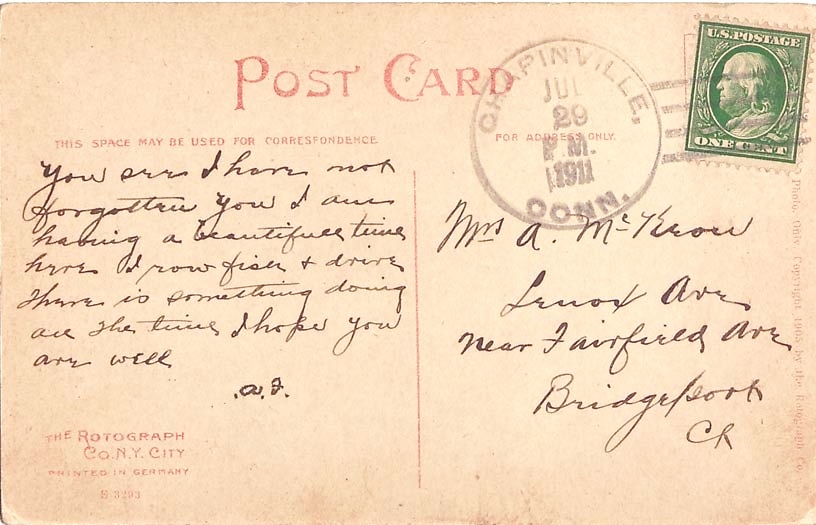 POST CARD
THIS SPACE MAY BE USED FOR CORRESPONDENCE
FOR ADDRESS ONLY.
CHAPINVILLE,
JUL
29
P.M.
1911
CONN.
U.S. POSTAGE
ONE CENT
You see I have not
forgotten you I am
having a beautifull time
here I row fish + drive
there is something doing
all the time I hope you
are well
a.F.
Mrs A. McKeon
Lenox Ave
near Fairfield Ave
Bridgeport
Ct
THE ROTOGRAPH
CO. N.Y. CITY
PRINTED IN GERMANY
E 3293
Photo Only Copyright 1905 by the Rotograph Co.